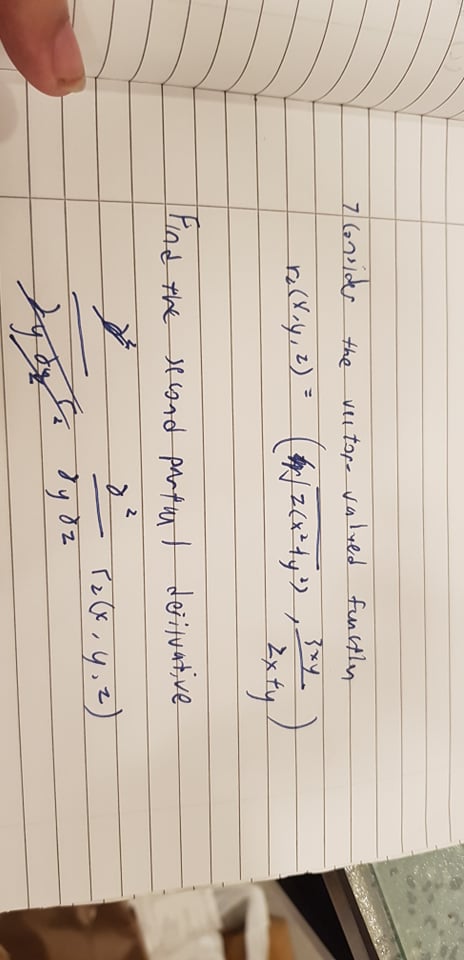 7 Consider the vector valued function
r₂(x, y, z) = (√z(x²+y²), 3xy/2x+y)
Find the second partial derivative
∂²/∂y∂z r₂(x, y, z)